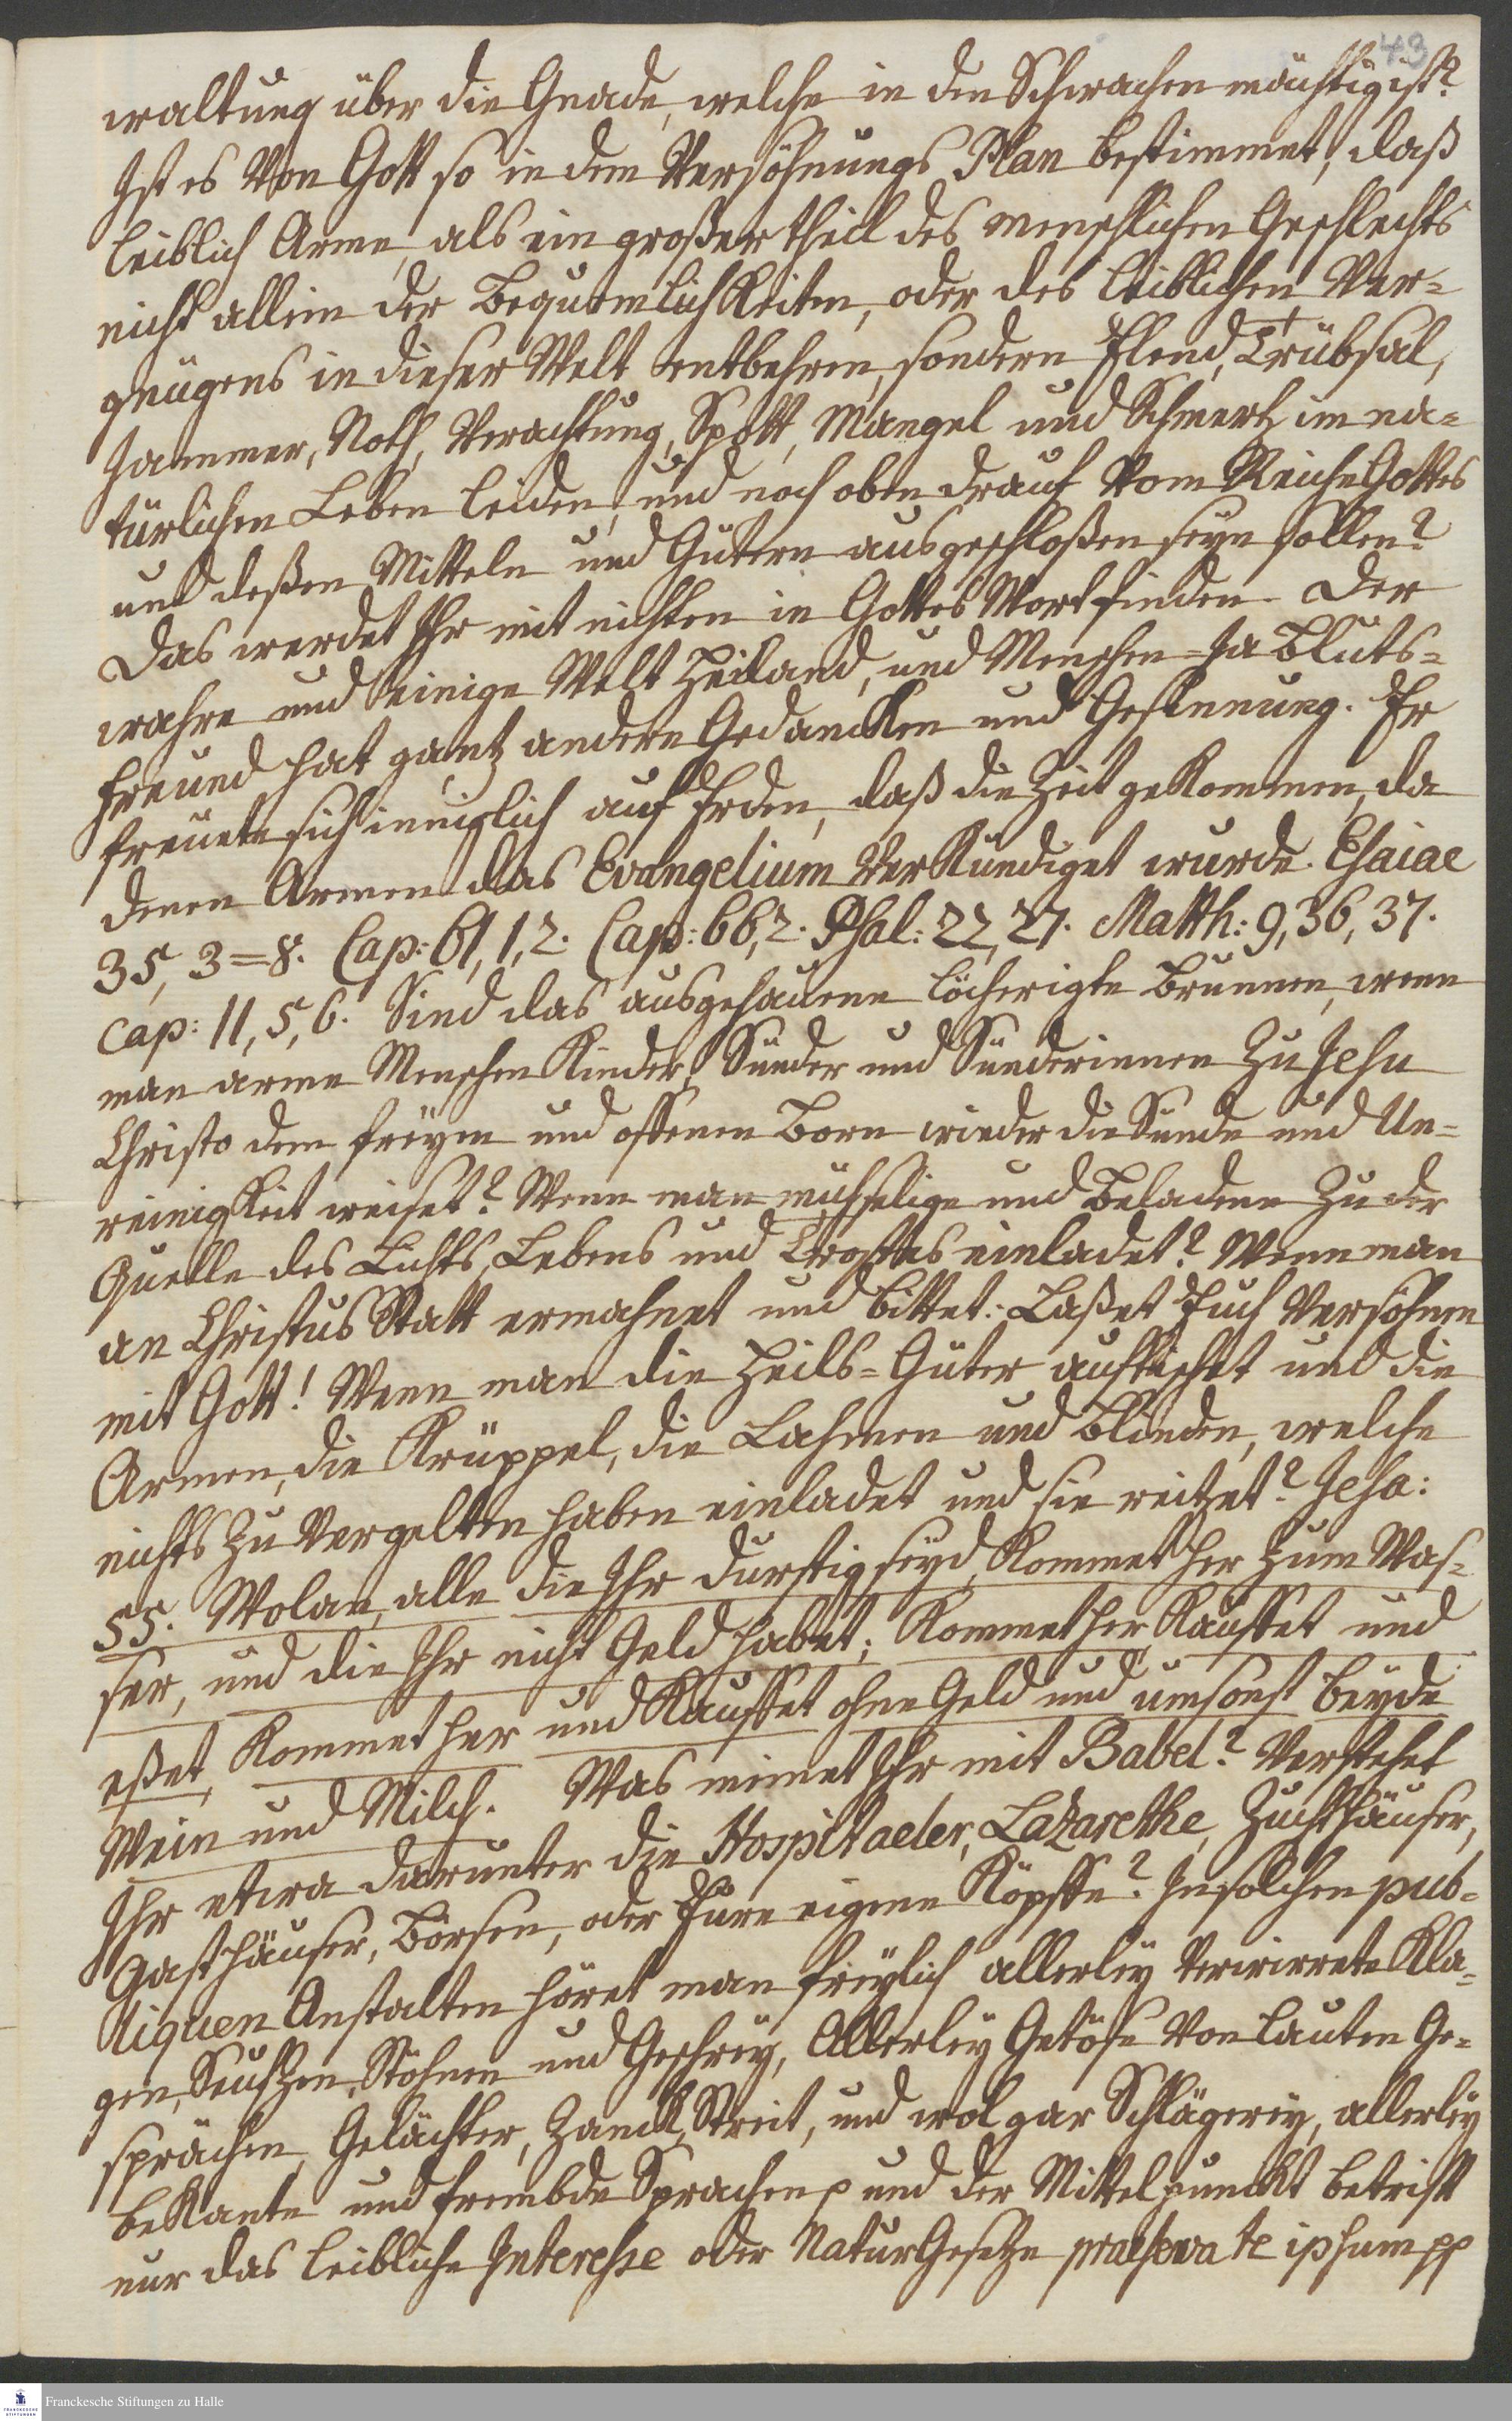 43
waltung über die Gnade, welche in den Schwachen mächtig ist?
Ist es von Gott so in dem Versöhnungs Plan bestimmet, daß
leiblich Arme, als ein großer theil des menschlichen Geschlechts
nicht allein der Bequemlichkeiten, oder des leiblichen Ver-
gnügens in dieser Welt entbehren, sondern Elend, Trübsal,
Jammer, Noth, Verachtung, Spott, Mangel und Schmertz im na-
türlichen Leben leiden, und noch oben drauf vom Reiche Gottes
und deßen Mitteln und Gütern ausgeschloßen seyn sollen?
Das werdet Ihr mit nichten in Gottes Wort finden. Der
wahre und einige Welt Heiland, und Menschen- Ja Bluts-
freund hat gantz andere Gedancken und Gesinnung. Er
freuete sich inniglich auf Erden, daß die Zeit gekommen, da
denen Armen das Evangelium verkündiget wurde. Esaiae
35, 3=8. Cap: 61, 1, 2. Cap: 66, 2. Psal: 22, 27. Matth: 9, 36, 37.
cap: 11, 5, 6. Sind das ausgehauene löcherigte Brunnen, wenn
man arme Menschen Kinder, Sünder und Sünderinnen zu Jesu
Christo dem freyen und offenen Born wieder die Sünde und Un-
reinigkeit weiset? Wenn man mühselige und Beladene zu der
Quelle des Lichts, Lebens und Trostes einladet? Wenn man
an Christus Statt ermahnet und bittet: Laßet Euch versöhnen
mit Gott! Wenn man die Heils-Güter auftischt und die
Armen, die Krüppel, die Lahmen und Blinden, welche
nichts zu vergelten haben einladet und sie reitzet? Jesa:
55. Wolan, alle die Ihr durstig seyd, kommet her zum Was-
ser, und die Ihr nicht Geld habet; kommet her, kauffet und
eßet, kommet her und kauffet ohne Geld und umsonst beyde
Wein und Milch. Was meinet Ihr mit Babel? Verstehet
Ihr etwa darunter die Hospitaeler, Lazarethe, Zuchthäuser,
Gasthäuser, Börsen, oder Eure eigene Köpffe? In solchen pub-
liquen Anstalten höret man freylich allerley verwirrete Kla-
gen, Seuffzen, Stöhnen und Geschrey, Allerley Getöse von lauten Ge-
sprächen, Gelächter, Zanck, Streit, und wol gar Schlägerey, allerley
bekante und frembde Sprachen p und der Mittelpunckt betrifft
nur das leibliche Interesse oder Natur Gesetze praeserva te ipsum pp
Franckesche Stiftungen zu Halle
FRANCKESCHE
STIFTUNGEN